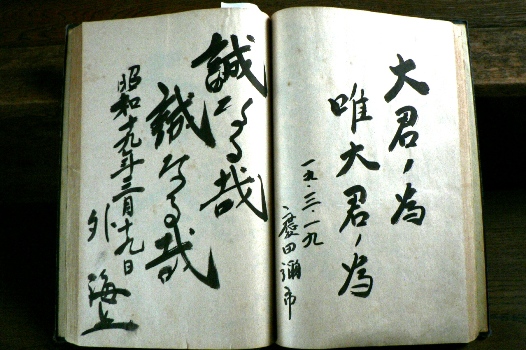 大君ノ為
唯大君ノ為
一九・三・一九
慶田彌市
誠なる哉
誠なる哉
昭和十九年三月十九日
海上